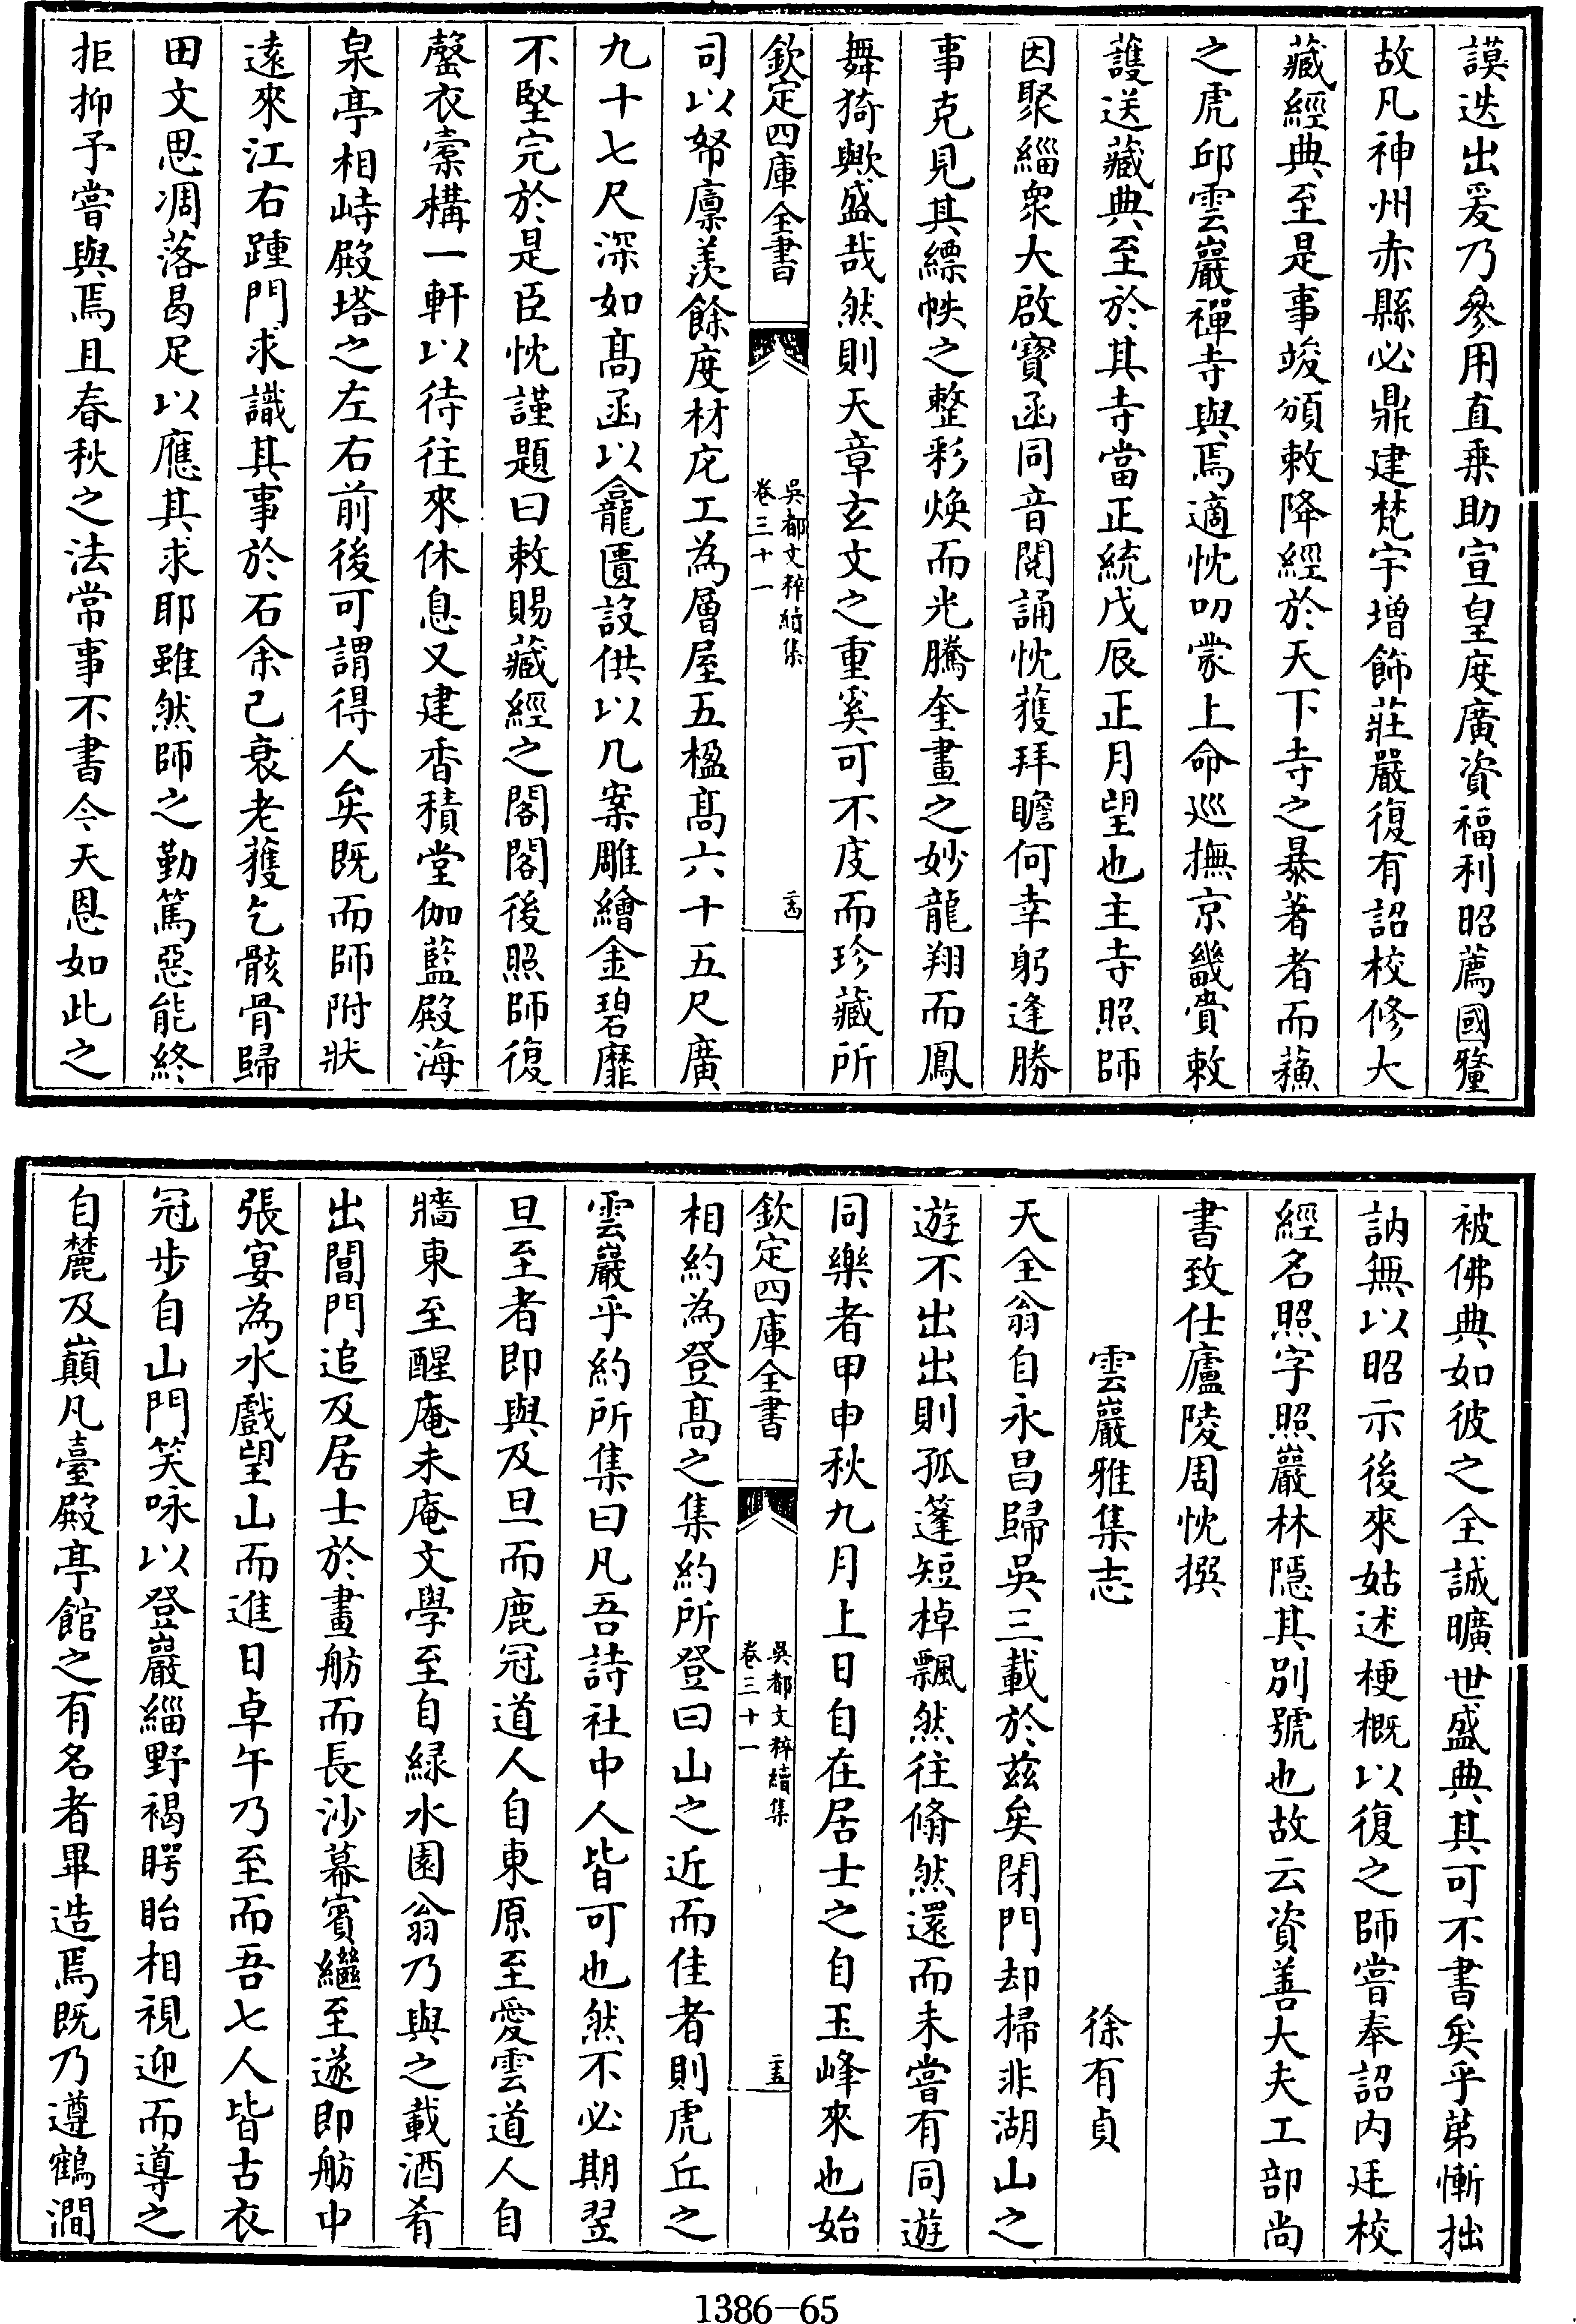 謨迭出爰乃參用直乘助宣皇度廣資福利昭薦國釐
故凡神州赤縣必鼎建梵宇增飾莊嚴復有詔校修大
藏經典至是事竣頒敕降經於天下寺之暴著者而蘓
之虎邱雲巖禪寺與焉適忱叨蒙上命巡撫京畿賫敕
護送藏典至於其寺當正統戊辰正月望也主寺照師
因聚緇衆大啟寳函同音閱誦忱獲拜瞻何幸躬逢勝
事克見其縹帙之整彩煥而光騰奎畫之妙龍翔而鳳
舞猗歟盛哉然則天章玄文之重奚可不庋而珍藏所
欽定四庫全書
吳都文粹續集
卷三十一
司以帑廩羨餘度材庀工為層屋五楹髙六十五尺廣
九十七尺深如髙函以龕匵設供以几案雕繪金碧靡
不堅完於是臣忱謹題曰敕賜藏經之閣閣後照師復
罄衣橐構一軒以待往來休息又建香積堂伽藍殿海
泉亭相峙殿塔之左右前後可謂得人矣既而師附狀
逺來江右踵門求識其事於石余已衰老獲乞骸骨歸
田文思凋落曷足以應其求耶雖然師之勤篤惡能終
拒抑予嘗與焉且春秋之法常事不書今天恩如此之
被佛典如彼之全誠曠世盛典其可不書矣乎第慚拙
訥無以昭示後來姑述梗概以復之師嘗奉詔内廷校
經名照字照巖林隱其別號也故云資善大夫工部尚
書致仕廬陵周忱撰
雲巖雅集志　徐有貞
天全翁自永昌歸吳三載於兹矣閉門却掃非湖山之
遊不出出則孤篷短棹飄然往翛然還而未嘗有同遊
同樂者甲申秋九月上日自在居士之自玉峰來也始
欽定四庫全書
吳都文粹續集
卷三十一
相約為登髙之集約所登曰山之近而佳者則虎丘之
雲巖乎約所集曰凡吾詩社中人皆可也然不必期翌
旦至者即與及旦而鹿冠道人自東原至愛雲道人自
牆東至醒庵未庵文學至自緑水園翁乃與之載酒肴
出閶門追及居士於畫舫而長沙幕賓繼至遂即舫中
張宴為水戲望山而進日卓午乃至而吾七人皆古衣
冠步自山門笑咏以登巖緇野褐睜眙相視迎而導之
自麓及巔凡臺殿亭館之有名者畢造焉既乃遵鶴澗
1386—65